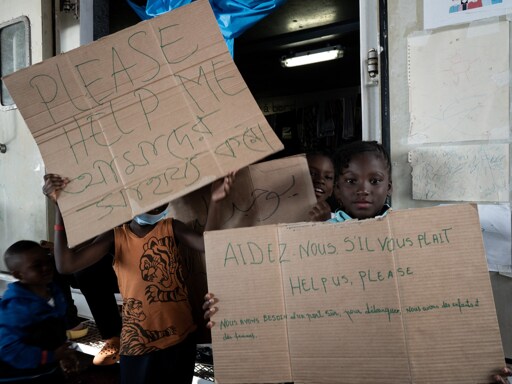 PLEASE
HELP ME
আমাদের
সাহায্য করো
AIDEZ-NOUS S'IL VOUS PLAIT
HELP US, PLEASE
NOUS AVONS BESOIN d'un port sûr, pour débarquer, nous avons des enfants et
des femmes